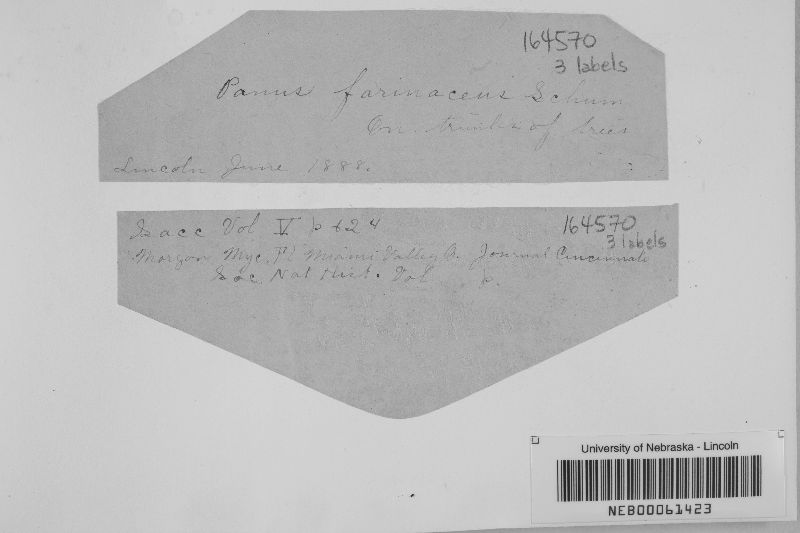 164570
3 labels
Panus farinaceus Schum
On trunks of trees
Lincoln June 1888.
Sacc Vol V. p 624
164570
3 labels
Morgan Myc. Fl Miami Valley O. Journal Cincinnati
Soc Nat Hist. Vol p.
University of Nebraska - Lincoln
NEB00061423